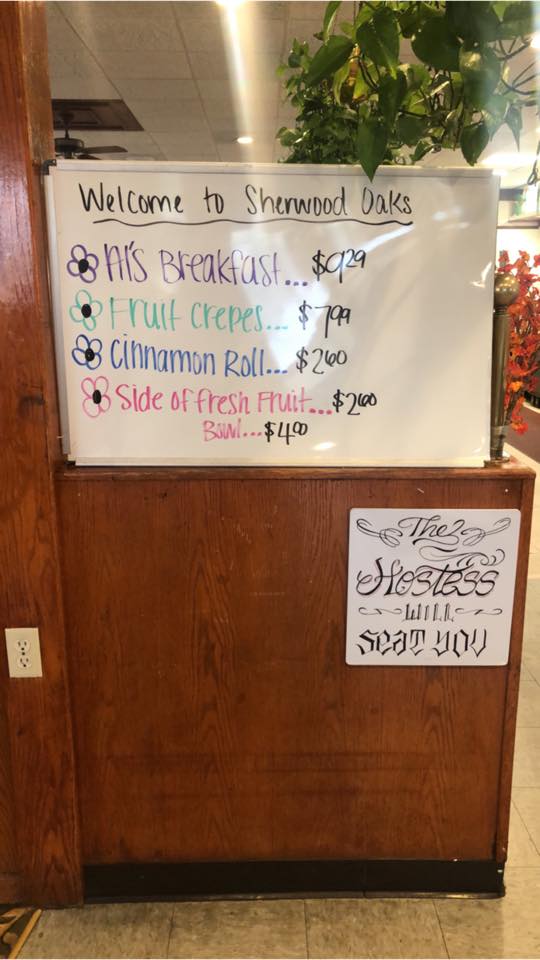 Welcome to Sherwood Oaks
Al's Breakfast... $9.29
Fruit crepes... $7.99
Cinnamon Roll... $2.60
Side of fresh Fruit... $2.60
Bowl... $4.00
The
Hostess
WILL
SEAT YOU